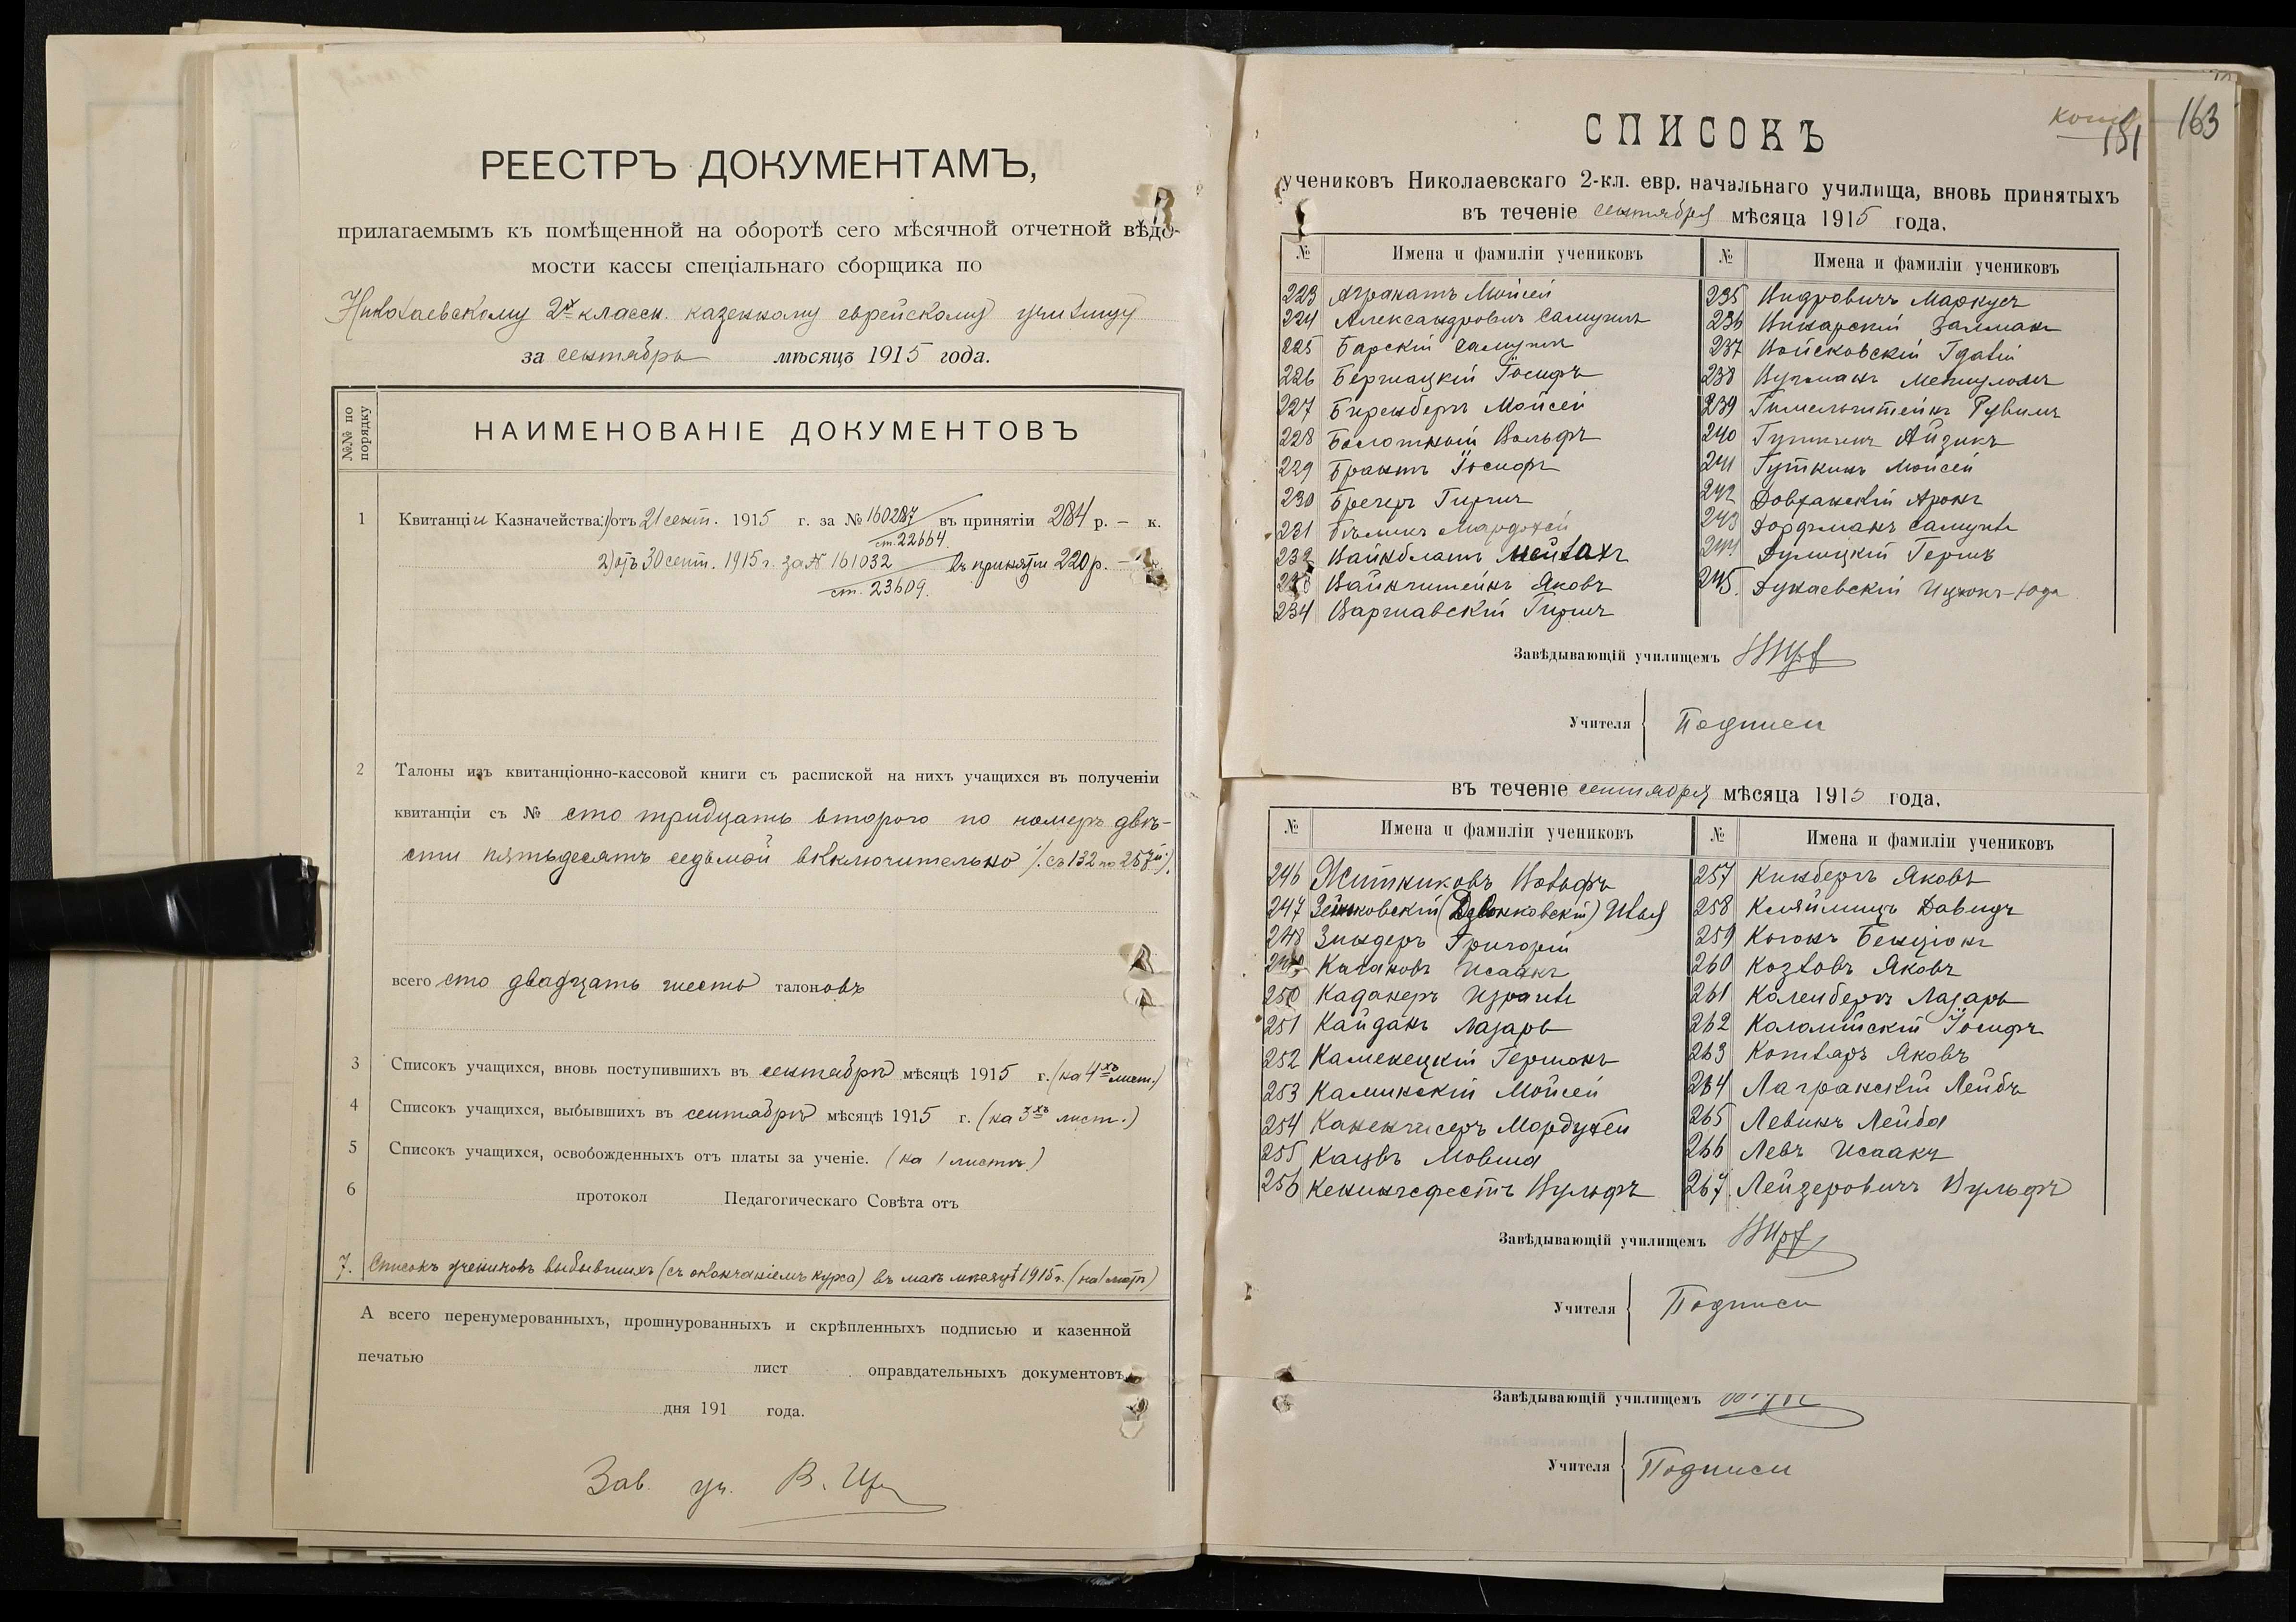 РЕЕСТРЪ ДОКУМЕНТАМЪ,
прилагаемымъ къ помѣщенной на оборотѣ сего мѣсячной отчетной вѣдо-
мости кассы спеціальнаго сборщика по
Николаевскому 2х класси. казенному еврейскому училищу
за сентябрь мѣсяцъ 1915 года.
№№ по порядку
НАИМЕНОВАНІЕ ДОКУМЕНТОВЪ
1 Квитанціи Казначейства: 1) отъ 21 сент. 1915 г. за № 160287 въ принятіи 284 р. – к.
ст. 22664.
2) отъ 30 сент. 1915 г. за № 161032 въ принятіи 220 р. –
ст. 23609.
2 Талоны изъ квитанціонно-кассовой книги съ распиской на нихъ учащихся въ полученіи
квитанціи съ № сто тридцать второго по номеръ двѣ-
сти пятьдесятъ седьмой включительно /. съ 132 по 257й /.
всего сто двадцать шесть талоновъ
3 Списокъ учащихся, вновь поступившихъ въ сентябрѣ мѣсяцѣ 1915 г. (на 4хъ лист.)
4 Списокъ учащихся, выбывшихъ въ сентябрѣ мѣсяцѣ 1915 г. (на 3хъ лист.)
5 Списокъ учащихся, освобожденныхъ отъ платы за ученіе. (на 1 листѣ)
6 протокол Педагогическаго Совѣта отъ
7. Списокъ учениковъ выбывшихъ (съ окончаніемъ курса) въ маѣ мѣсяцѣ 1915 г. (на 1 листѣ)
А всего перенумерованныхъ, прошнурованныхъ и скрѣпленныхъ подписью и казенной
печатью лист оправдательныхъ документовъ
дня 191 года.
Зав. уч.
163
181
СПИСОКЪ
учениковъ Николаевскаго 2-кл. евр. начальнаго училища, вновь принятыхъ
въ теченіе сентября мѣсяца 1915 года.
№ Имена и фамиліи учениковъ № Имена и фамиліи учениковъ
223 Агранатъ Мойсей
224 Александровичъ Самуилъ
225 Барскій Самуилъ
226 Бершацкій Іосифъ
227 Биренбергъ Мойсей
228 Болотный Вольфъ
229 Брантъ Іосифъ
230 Бречеръ Гиршъ
231 Мордохей
232 Вайнблатъ
233 Вайнштейнъ Яковъ
234 Варшавскій Гиршъ
235 Видровичъ Маркусъ
236 Винарскій Залманъ
237 Войсковскій Гдалій
238 Вугманъ
239 Гимельштейнъ Рувимъ
240 Айзикъ
241 Гуткинъ Мойсей
242 Довжанскій Аронъ
243 Дорфманъ Самуилъ
244 Дулицкій Гершъ
245. Дунаевскій Ицхокъ-Юда
Завѣдывающій училищемъ
Учителя Подписи
въ теченіе сентября мѣсяца 1915 года.
№ Имена и фамиліи учениковъ № Имена и фамиліи учениковъ
246 Житниковъ Вольфъ
247 Зеньковскій (Дзвонковскій) Илья
248 Зиндеръ Григорій
249 Исаакъ
250 Каданеръ Израиль
251 Кайданъ Лазарь
252 Каменецкій Гершонъ
253 Каминскій Мойсей
254 Каненгисеръ Мордухей
255 Кацвъ Мовша
256 Кенингсфестъ Вульфъ
257 Кинбергъ Яковъ
258 Давидъ
259 Коганъ Бенціонъ
260 Козловъ Яковъ
261 Коленбергъ Лазарь
262 Коломійскій Іосифъ
263 Котляръ Яковъ
264 Лагранскій Лейбъ
265 Левинъ Лейба
266 Левъ Исаакъ
267. Лейзеровичъ Вульфъ
Завѣдывающій училищемъ
Учителя Подписи
Завѣдывающій училищемъ
Учителя Подписи